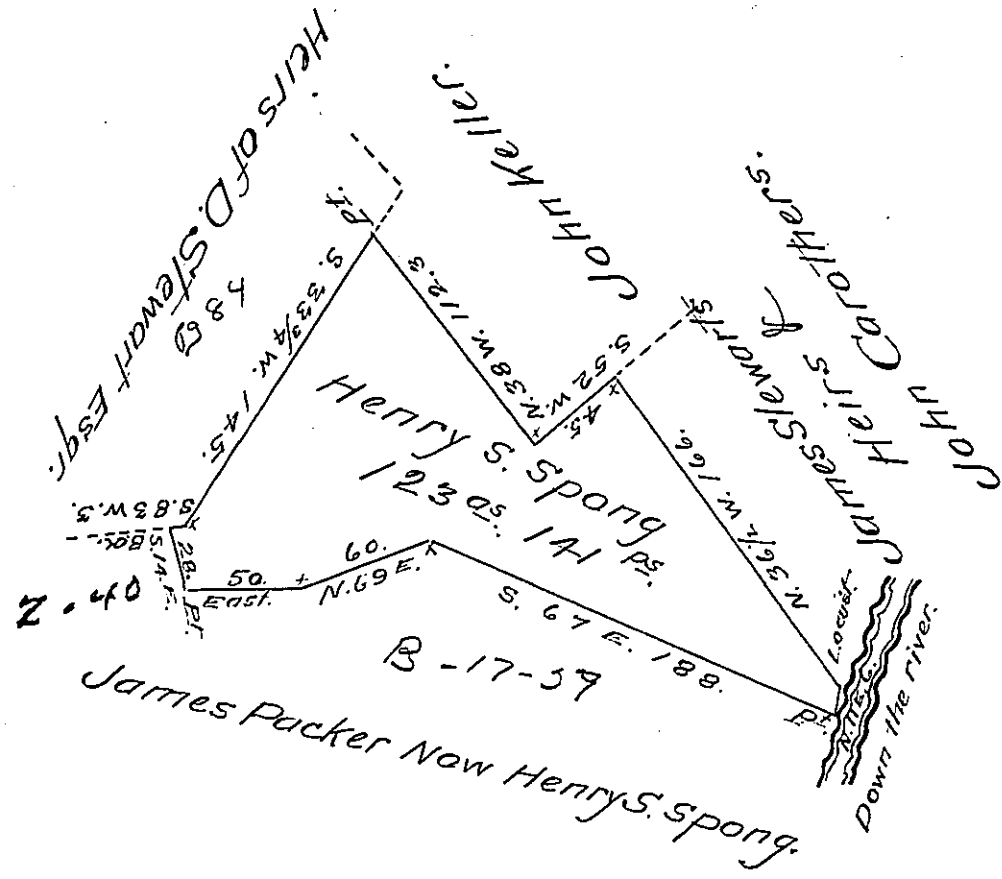 Heirs of D. Stewart Esqr.
John Keller.
John Carothers.
Heirs &
James Stewart's
pt.
S. 33 3/4 W. 145.
N. 38 W. 112.3
S. 52 W.
45.
N. 36 1/2 W. 166.
Henry S. Spong
123 as. 141 ps.
S. 83 W. 3.
S. 14 E.
28.
Pt.
50.
East.
60.
N. 69 E.
S. 67 E. 188.
Locust.
pt.
N. 11 E. 6.
Down the river.
B-17-59
James Packer Now Henry S. Spong.